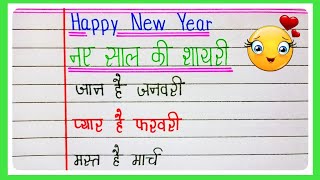 Happy New Year
नए साल की शायरी
जान है जनवरी
प्यार है फरवरी
मस्त है मार्च